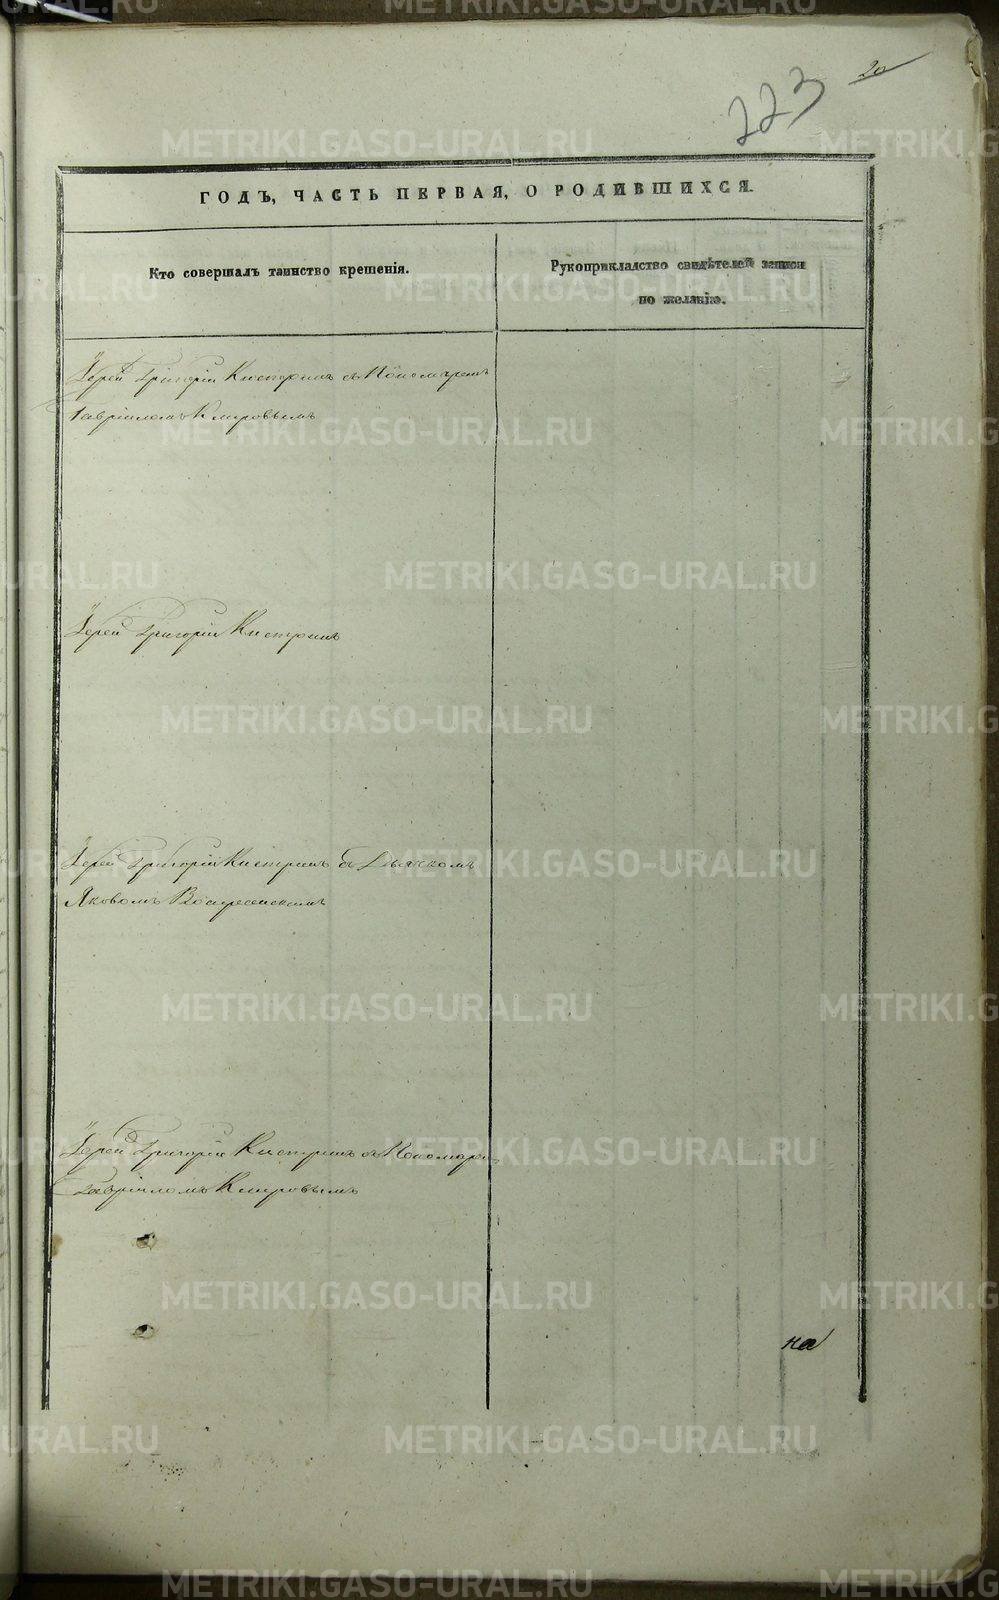 20
223
ГОДЪ, ЧАСТЬ ПЕРВАЯ, О РОДИВШИХСЯ.
Кто совершалъ таинство крещенія.
Рукоприкладство свидѣтелей записи
по желанію.
Іерей Григорій Кистринъ съ Пономаремъ
Гавріиломъ Кировымъ
Іерей Григорій Кистринъ
Іерей Григорій Кистринъ съ Дьячкомъ
Яковомъ Воскресенскимъ
Іерей Григорій Кистринъ съ Пономарем
Гавріиломъ Кировымъ
на
METRIKI.GASO-URAL.RU